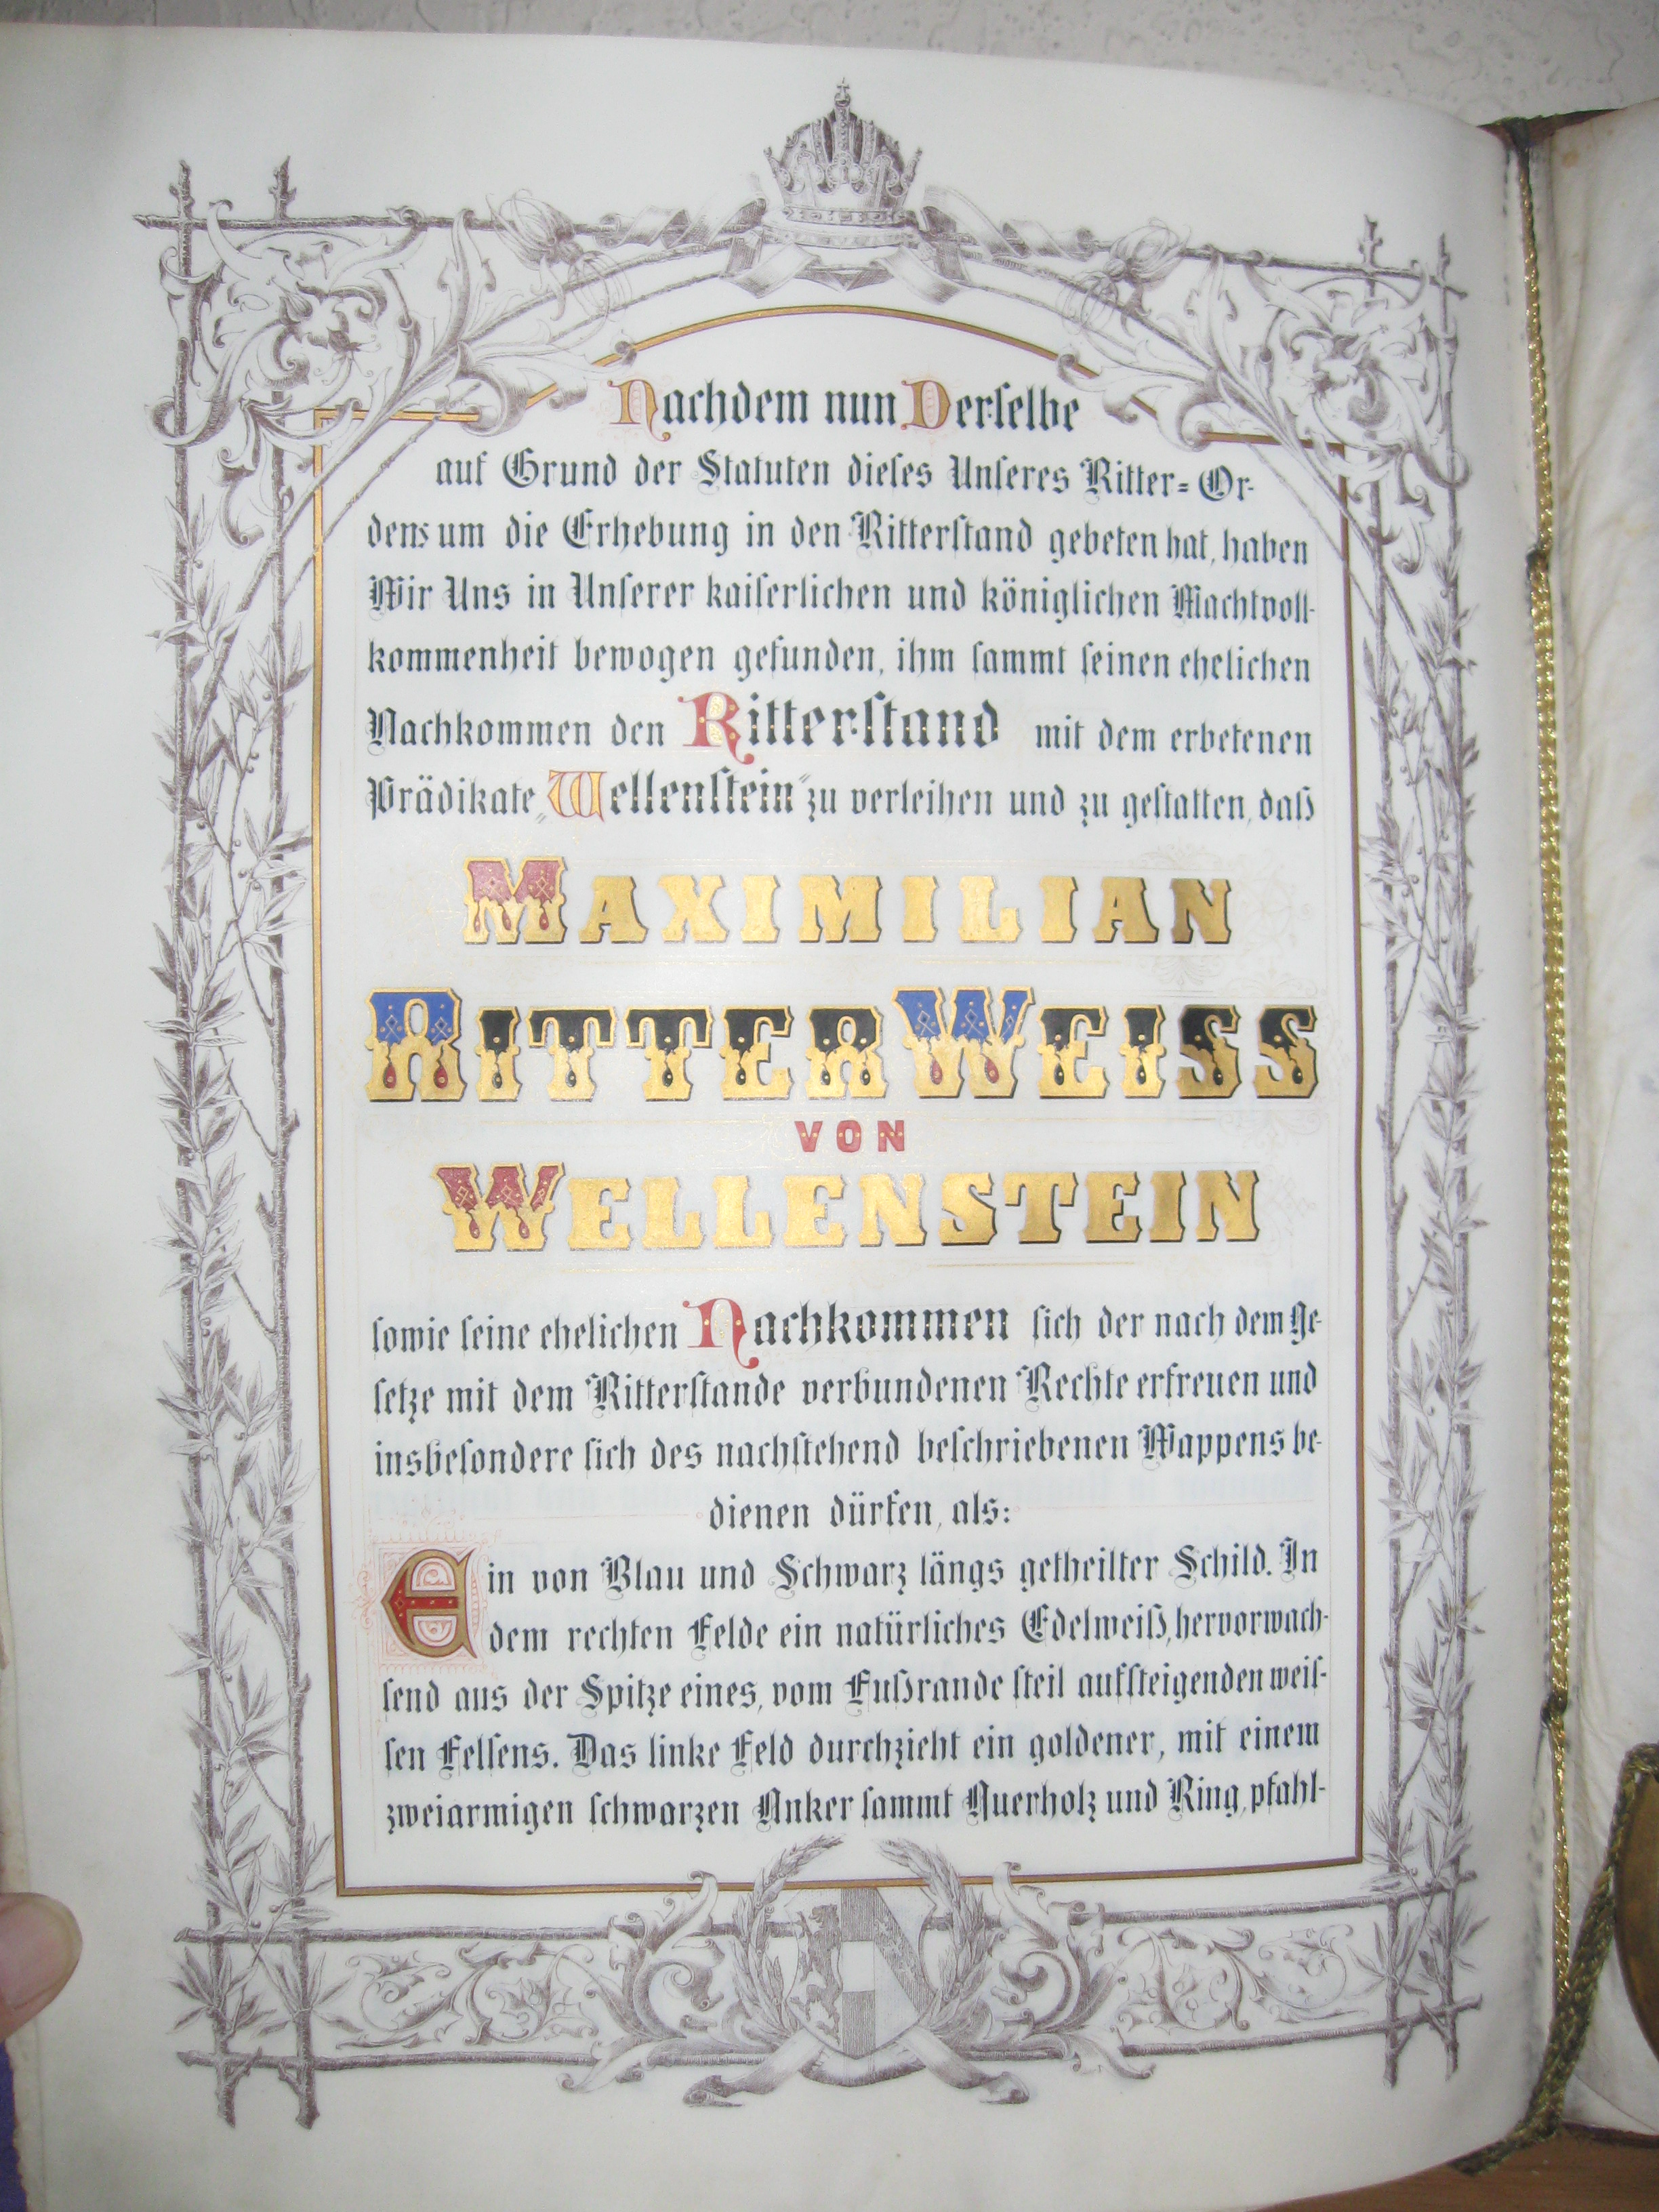 Nachdem nun Derselbe
auf Grund der Statuten dieses Unseres Ritter=Or-
dens um die Erhebung in den Ritterstand gebeten hat, haben
Wir Uns in Unserer kaiserlichen und königlichen Machtvoll-
kommenheit bewogen gefunden, ihm sammt seinen ehelichen
Nachkommen den Ritterstand mit dem erbetenen
Prädikate „Wellenstein“ zu verleihen und zu gestatten, daß
MAXIMILIAN
RITTER WEISS
VON
WELLENSTEIN
sowie seine ehelichen Nachkommen sich der nach dem Ge-
setze mit dem Ritterstande verbundenen Rechte erfreuen und
insbesondere sich des nachstehend beschriebenen Wappens be-
dienen dürfen, als:
Ein von Blau und Schwarz längs getheilter Schild. In
dem rechten Felde ein natürliches Edelweiß, hervorwach-
send aus der Spitze eines, vom Fußrande steil aufsteigenden weis-
sen Felsens. Das linke Feld durchzieht ein goldener, mit einem
zweiarmigen schwarzen Anker sammt Querholz und Ring, pfahl-